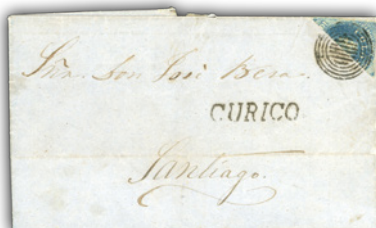 Sñr. Don José
CURICO
Santiago.